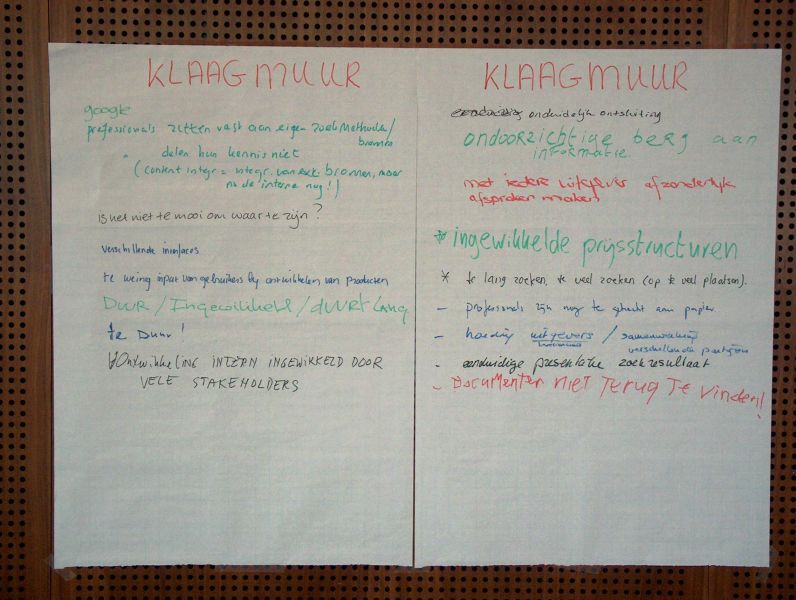 KLAAGMUUR
google
professionals zitten vast aan eigen zoekmethode/
bronnen
delen hun kennis niet
(content integr = integr. van ext. bronnen, maar
nu de interne nog!)
is het niet te mooi om waar te zijn?
verschillende interfaces
te weinig input van gebruikers bij ontwikkelen van producten
DUUR / Ingewikkeld / duurt lang
te Duur!
Ontwikkeling INTERN INGEWIKKELD DOOR
VELE STAKEHOLDERS
KLAAGMUUR
onduidelijk ontsluiting
ondoorzichtige berg aan
informatie
met iedere uitgever afzonderlijk
afspraken maken
* ingewikkelde prijsstructuren
* te lang zoeken, te veel zoeken (op te veel plaatsen).
- professionals zijn nog te gehecht aan papier
- houding uitgevers / samenwerking
verschillende partijen
- eenduidige presentatie zoekresultaat
- Documenten niet terug te vinden!